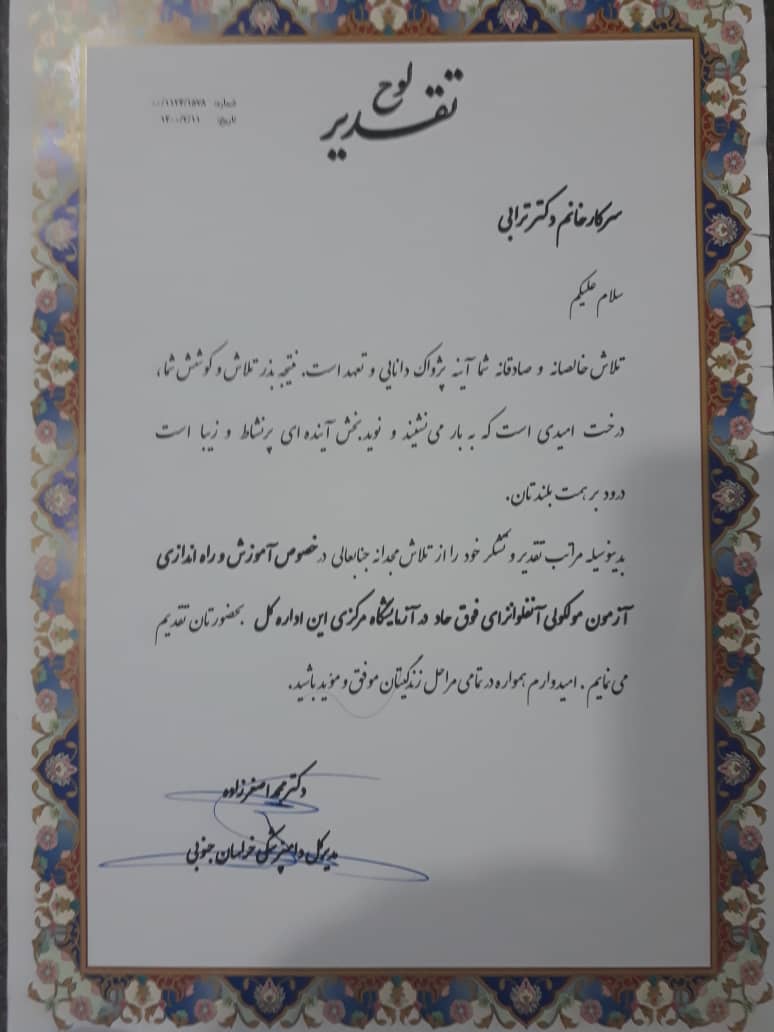 لوح
تقدیر
شماره:
تاریخ: ۱۴۰۰/۲/۱۱
سرکار خانم دکتر ترابی
سلام علیکم
تلاش خالصانه و صادقانه شما آینه پژواک دانایی و تعهد است. نتیجه بذر تلاش و کوشش شما،
درخت امیدی است که به بار می‌نشیند و نویدبخش آینده ای پرنشاط و زیبا است
درود بر همت بلندتان.
بدینوسیله مراتب تقدیر و تشکر خود را از تلاش مجدانه جنابعالی در خصوص آموزش و راه اندازی
آزمون مولکولی آنفلوانزای فوق حاد در آزمایشگاه مرکزی این اداره کل بحضورتان تقدیم
می نمایم. امیدوارم همواره در تمامی مراحل زندگیتان موفق و مؤید باشید.
دکتر محمد اصغرزاده
مدیرکل دامپزشکی خراسان جنوبی